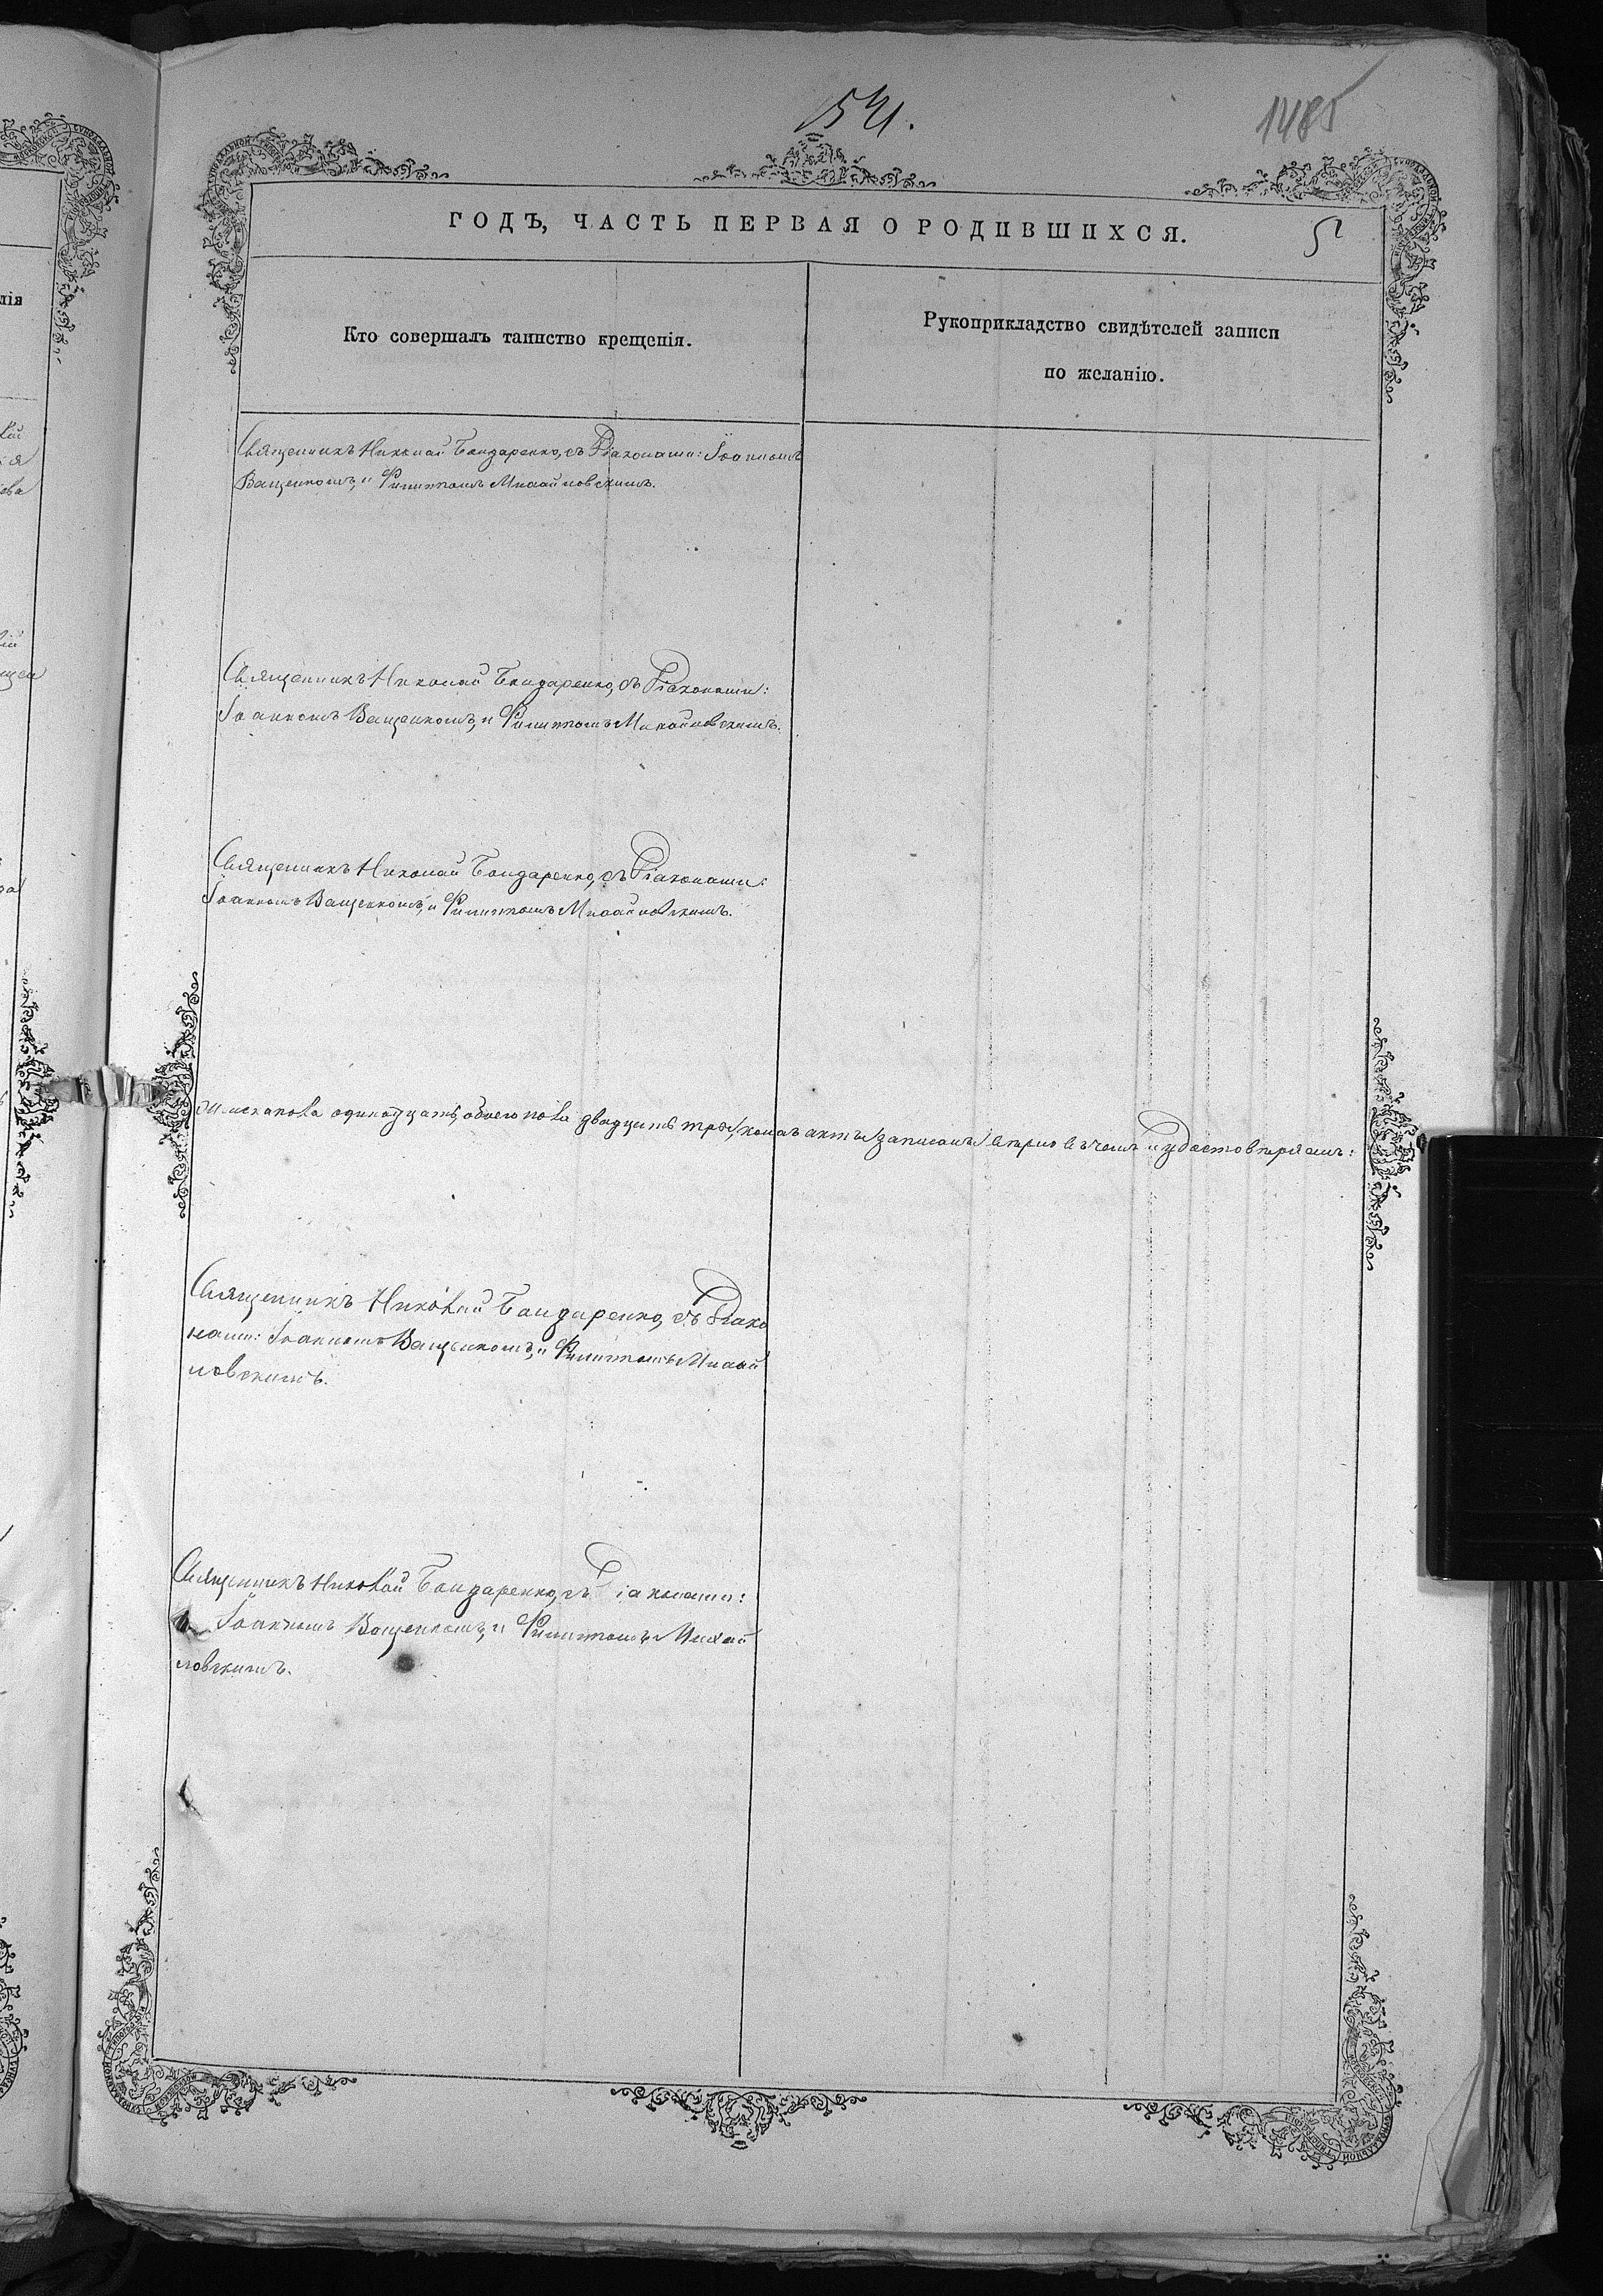 541.
1485
ГОДЪ, ЧАСТЬ ПЕРВАЯ О РОДИВШИХСЯ.
Кто совершалъ таинство крещенія.
Рукоприкладство свидѣтелей записи
по желанію.
Священникъ Николай Бондаренко, съ Діаконами: Іоанномъ
Ващенкомъ, и Филиппомъ Михайловскимъ.
Священникъ Николай Бондаренко, съ Діаконами:
Іоанномъ Ващенкомъ, и Филиппомъ Михайловскимъ.
Священникъ Николай Бондаренко, съ Діаконами:
Іоанномъ Ващенкомъ, и Филиппомъ Михайловскимъ.
женска пола одинадцать, обоего пола двадцать три, акты записаны вѣрно въ чемъ и удостовѣряемъ:
Священникъ Николай Бондаренко, съ Діако
нами: Іоанномъ Ващенкомъ, и Филиппомъ Михай
ловскимъ.
Священникъ Николай Бондаренко, съ Діаконами:
Іоанномъ Ващенкомъ, и Филиппомъ Михай
ловскимъ.